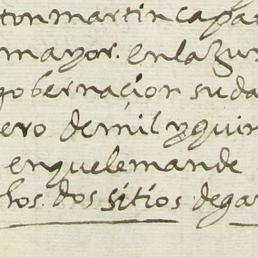 ton martin capa
mayor. en la ziu
gobernacion su da
ero de mil y quin
en que le mande
hos. dos sitios de ga